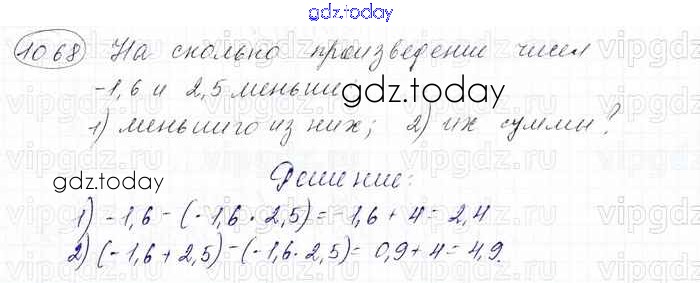 gdz.today
1068 На сколько произведение чисел
-1,6 и 2,5 меньше:
gdz.today
1) меньшего из них; 2) их суммы?
gdz.today
Решение:
1) -1,6 - (-1,6 · 2,5) = -1,6 + 4 = 2,4
2) (-1,6 + 2,5) - (-1,6 · 2,5) = 0,9 + 4 = 4,9.